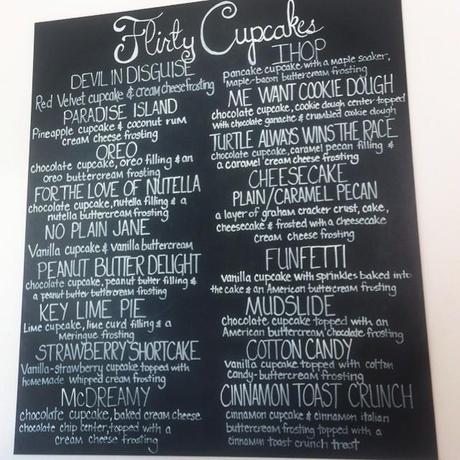 Flirty Cupcakes
DEVIL IN DISGUISE
Red Velvet cupcake & cream cheese frosting
PARADISE ISLAND
Pineapple cupcake & coconut rum
cream cheese frosting
OREO
chocolate cupcake, oreo filling & an
oreo buttercream frosting
FOR THE LOVE OF NUTELLA
chocolate cupcake, nutella filling & a
nutella buttercream frosting
NO PLAIN JANE
Vanilla cupcake & Vanilla buttercream
PEANUT BUTTER DELIGHT
chocolate cupcake, peanut butter filling
& a peanut butter buttercream frosting
KEY LIME PIE
Lime cupcake, lime curd filling & a
Meringue frosting
STRAWBERRY SHORTCAKE
Vanilla-strawberry cupcake topped with
homemade whipped cream frosting
McDREAMY
chocolate cupcake, baked cream cheese
chocolate chip center, topped with a
cream cheese frosting
IHOP
pancake cupcake with a maple soaker,
maple-bacon buttercream frosting
ME WANT COOKIE DOUGH
chocolate cupcake, cookie dough center topped
with chocolate ganache & crumbled cookie dough
TURTLE ALWAYS WINS THE RACE
chocolate cupcake, caramel pecan filling &
a caramel cream cheese frosting
CHEESECAKE
PLAIN/CARAMEL PECAN
a layer of graham cracker crust, cake,
cheesecake & frosted with a cheesecake
cream cheese frosting
FUNFETTI
vanilla cupcake with sprinkles baked into
the cake & an American buttercream frosting
MUDSLIDE
chocolate cupcake topped with an
American buttercream chocolate frosting
COTTON CANDY
vanilla cupcake topped with cotton
candy-buttercream frosting
CINNAMON TOAST CRUNCH
cinnamon cupcake & cinnamon italian
buttercream frosting topped with a
cinnamon toast crunch treat